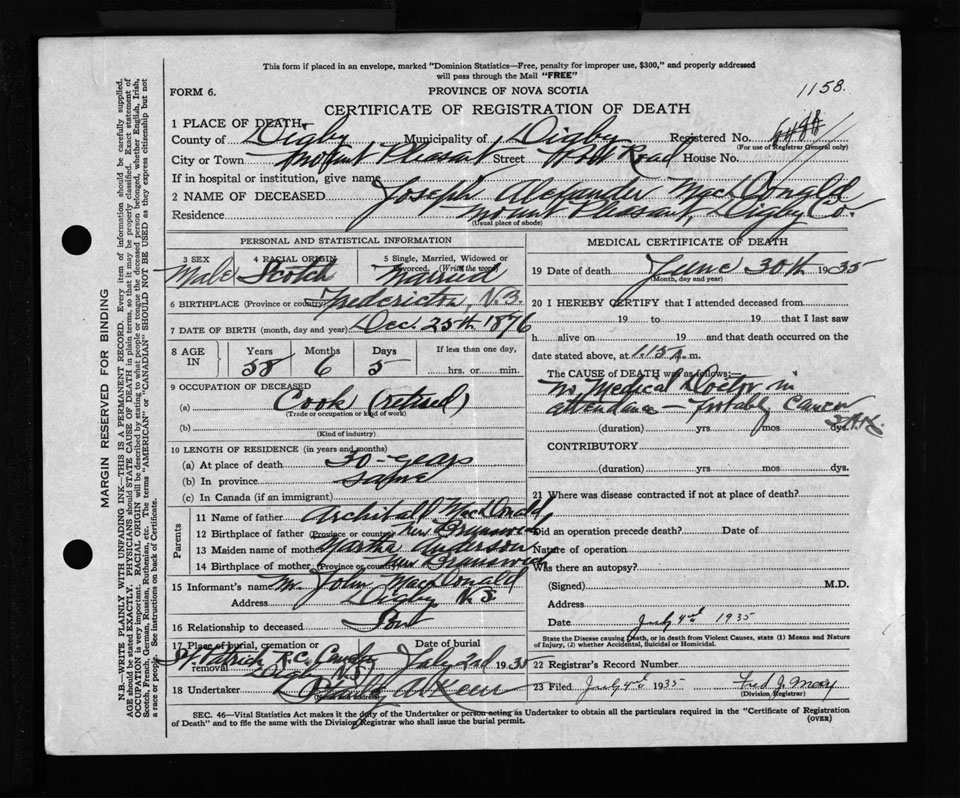 This form if placed in an envelope, marked "Dominion Statistics—Free, penalty for improper use, $300," and properly addressed
will pass through the Mail "FREE"
FORM 6.
PROVINCE OF NOVA SCOTIA
1158.
CERTIFICATE OF REGISTRATION OF DEATH
1 PLACE OF DEATH,
County of Digby Municipality of Digby Registered No.
(For use of Registrar General only)
City or Town Mount Pleasant Street Road House No.
If in hospital or institution, give name
2 NAME OF DECEASED Joseph Alexander MacDonald
Residence Mount Pleasant, Digby Co.
(Usual place of abode)
PERSONAL AND STATISTICAL INFORMATION
3 SEX Male
4 RACIAL ORIGIN Scotch
5 Single, Married, Widowed or Divorced. (Write the word) Married
6 BIRTHPLACE (Province or country) Fredericton, N.B.
7 DATE OF BIRTH (month, day and year) Dec. 25th 1876
8 AGE IN Years 58 Months 6 Days 5 If less than one day, hrs. or min.
9 OCCUPATION OF DECEASED
(a) Cook (retired)
(Trade or occupation or kind of work)
(b)
(Kind of industry)
10 LENGTH OF RESIDENCE (in years and months)
(a) At place of death 30-years
(b) In province same
(c) In Canada (if an immigrant)
Parents
11 Name of father Archibald MacDonald
12 Birthplace of father (Province or country) New Brunswick
13 Maiden name of mother Martha Anderson
14 Birthplace of mother (Province or country) New Brunswick
15 Informant's name Mr. John MacDonald
Address Digby N.S.
16 Relationship to deceased Son
17 Place of burial, cremation or removal St. Patrick R.C. Digby N.S. Date of burial July 2nd 1935
18 Undertaker
(Name and address)
MEDICAL CERTIFICATE OF DEATH
19 Date of death June 30th 1935
(Month, day and year)
20 I HEREBY CERTIFY that I attended deceased from
19 to 19 that I last saw
h alive on 19 and that death occurred on the
date stated above, at 1.15 m.
The CAUSE of DEATH was as follows:—
No Medical Doctor in
attendance — Probably Cancer
(duration) yrs. mos. dys.
CONTRIBUTORY
(duration) yrs. mos. dys.
21 Where was disease contracted if not at place of death?
Did an operation precede death? Date of
Nature of operation
Was there an autopsy?
(Signed) M.D.
Address
Date July 4th 1935
State the Disease causing Death, or in death from Violent Causes, state (1) Means and Nature
of Injury, (2) whether Accidental, Suicidal or Homicidal.
22 Registrar's Record Number
23 Filed July 4th 1935 Fred J.
(Division Registrar)
SEC. 46—Vital Statistics Act makes it the duty of the Undertaker or person acting as Undertaker to obtain all the particulars required in the "Certificate of Registration
of Death" and to file the same with the Division Registrar who shall issue the burial permit.
(OVER)
MARGIN RESERVED FOR BINDING
N.B.—WRITE PLAINLY WITH UNFADING INK—THIS IS A PERMANENT RECORD. Every item of information should be carefully supplied.
AGE should be stated EXACTLY. PHYSICIANS should STATE CAUSE OF DEATH in plain terms, so that it may be properly classified. Exact statement of
OCCUPATION is very important. RACIAL ORIGIN will be described by stating to what people or tongue the deceased person belonged, whether English, Irish,
Scotch, French, German, Russian, Ruthenian, etc. The terms "AMERICAN" or "CANADIAN" SHOULD NOT BE USED as they express citizenship but not
a race or people. See instructions on back of Certificate.